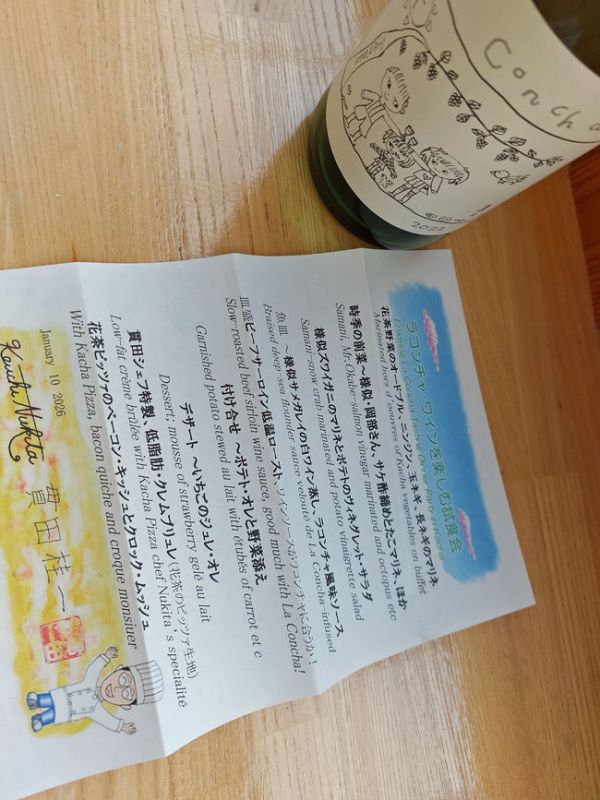 Concha
2022
ラコンチャ・ワインを楽しむ試食会
Enjoyed La Concha Tasting Dinner Party Kacha
花茶野菜のオードブル、ニンジン、玉ネギ、長ネギのマリネ
Marinated hors d'oeuvres of Kacha vegetables on buffet
時季の前菜～様似・岡部さん、サケ酢締めとたこマリネ、ほか
Samani, Mr. Okabe-salmon vinegar marinated and octopus etc
様似ズワイガニのマリネとポテトのヴィネグレット・サラダ
Samani-snow crab marinated and potato vinaigrette salad
魚皿 ～様似サメガレイの白ワイン蒸し、ラコンチャ風味ソース
Braised deep-sea flounder sauce velouté de La Concha-infused
皿盛ビーフサーロイン低温ロースト、ワインソースがコンチャに合うか！
Slow-roasted beef sirloin wine sauce, good much with La Concha!
付け合せ ～ポテト・オレと野菜添え
Garnished potato stewed au lait with étubés of carrot et c
デザート ～いちごのジュレ・オレ
Dessert, mousse of strawberry gelé au lait
貫田シェフ特製、低脂肪・クレムブリュレ (花茶のピッツァ生地)
Low-fat crème brûlée with Kacha Pizza chef Nukita's specialité
花茶ピッツァのベーコン・キッシュとクロック・ムッシュ
With Kacha Pizza, bacon quiche and croque monsiuer
January 10 2026
Kouichi Nukita
貫田桂一